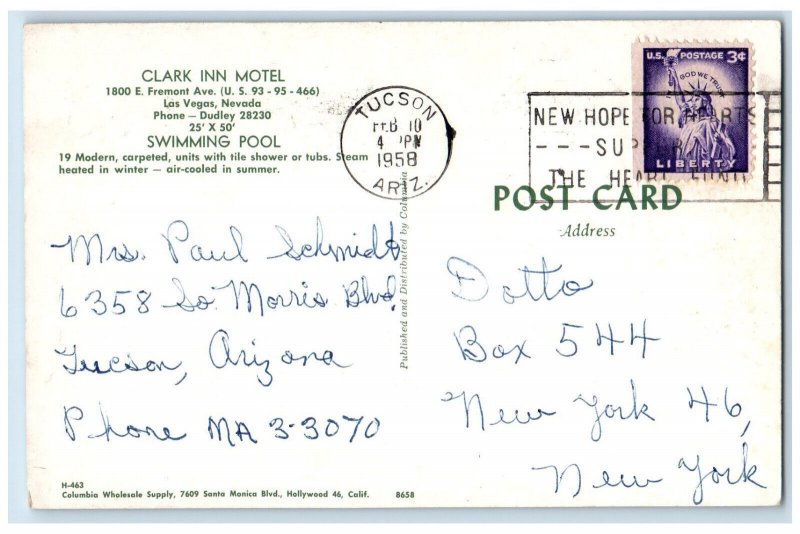 CLARK INN MOTEL
1800 E. Fremont Ave. (U. S. 93 - 95 - 466)
Las Vegas, Nevada
Phone — Dudley 28230
25' X 50'
SWIMMING POOL
19 Modern, carpeted, units with tile shower or tubs. Steam
heated in winter — air-cooled in summer.
TUCSON
FEB 10
4 PM
1958
ARIZ.
U.S. POSTAGE 3¢
IN GOD WE TRUST
LIBERTY
NEW HOPE FOR HEARTS
---SUPPORT
THE HEART FUND
POST CARD
Address
Published and Distributed by Columbia
Mrs. Paul Schmidt
6358 So. Morris Blvd.
Tucson, Arizona
Phone MA 3-3070
Dotto
Box 544
New York 46,
New York
H-463
Columbia Wholesale Supply, 7609 Santa Monica Blvd., Hollywood 46, Calif. 8658